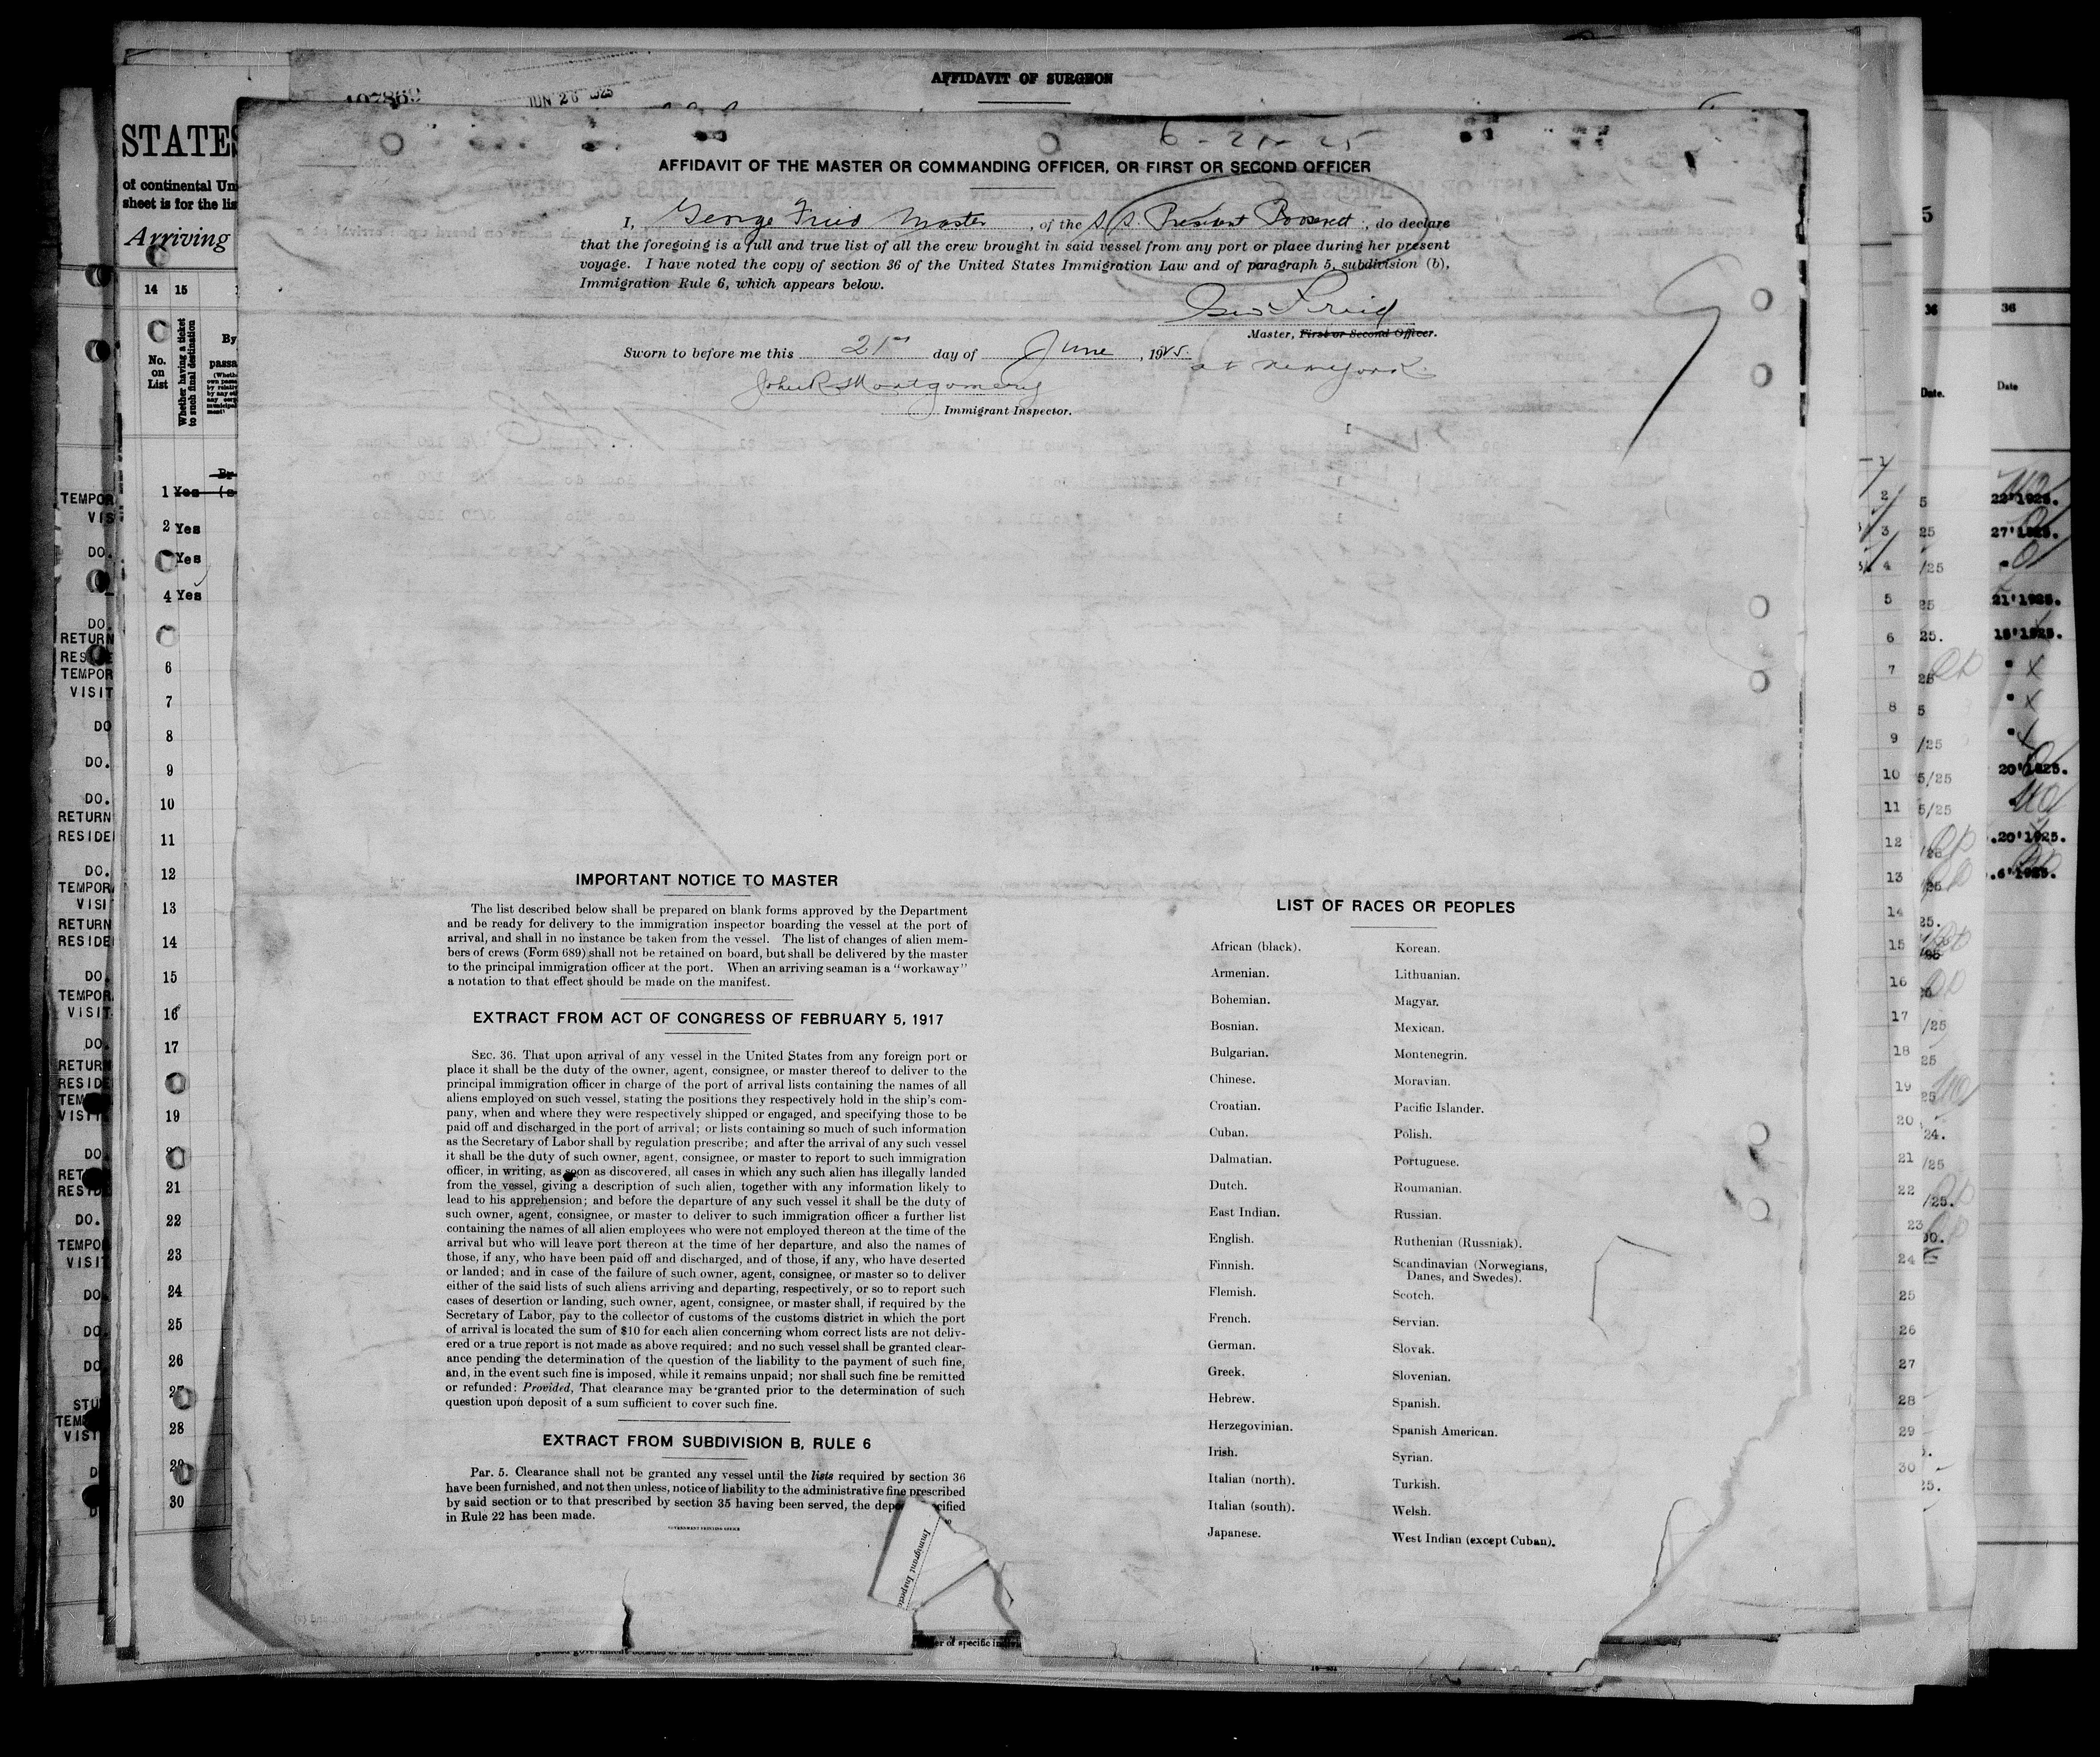 AFFIDAVIT OF SURGEON
JUN 26 1925
6-21-25
AFFIDAVIT OF THE MASTER OR COMMANDING OFFICER, OR FIRST OR SECOND OFFICER
I, George Fried Master, of the S.S. President Roosevelt, do declare
that the foregoing is a full and true list of all the crew brought in said vessel from any port or place during her present
voyage. I have noted the copy of section 36 of the United States Immigration Law and of paragraph 5, subdivision (b),
Immigration Rule 6, which appears below.
Geo Fried
Master, First or Second Officer.
Sworn to before me this 21st day of June, 1925.
at New York
John R Montgomery
Immigrant Inspector.
IMPORTANT NOTICE TO MASTER
The list described below shall be prepared on blank forms approved by the Department
and be ready for delivery to the immigration inspector boarding the vessel at the port of
arrival, and shall in no instance be taken from the vessel. The list of changes of alien mem-
bers of crews (Form 689) shall not be retained on board, but shall be delivered by the master
to the principal immigration officer at the port. When an arriving seaman is a "workaway"
a notation to that effect should be made on the manifest.
EXTRACT FROM ACT OF CONGRESS OF FEBRUARY 5, 1917
SEC. 36. That upon arrival of any vessel in the United States from any foreign port or
place it shall be the duty of the owner, agent, consignee, or master thereof to deliver to the
principal immigration officer in charge of the port of arrival lists containing the names of all
aliens employed on such vessel, stating the positions they respectively hold in the ship's com-
pany, when and where they were respectively shipped or engaged, and specifying those to be
paid off and discharged in the port of arrival; or lists containing so much of such information
as the Secretary of Labor shall by regulation prescribe; and after the arrival of any such vessel
it shall be the duty of such owner, agent, consignee, or master to report to such immigration
officer, in writing, as soon as discovered, all cases in which any such alien has illegally landed
from the vessel, giving a description of such alien, together with any information likely to
lead to his apprehension; and before the departure of any such vessel it shall be the duty of
such owner, agent, consignee, or master to deliver to such immigration officer a further list
containing the names of all alien employees who were not employed thereon at the time of the
arrival but who will leave port thereon at the time of her departure, and also the names of
those, if any, who have been paid off and discharged, and of those, if any, who have deserted
or landed; and in case of the failure of such owner, agent, consignee, or master so to deliver
either of the said lists of such aliens arriving and departing, respectively, or so to report such
cases of desertion or landing, such owner, agent, consignee, or master shall, if required by the
Secretary of Labor, pay to the collector of customs of the customs district in which the port
of arrival is located the sum of $10 for each alien concerning whom correct lists are not deliv-
ered or a true report is not made as above required; and no such vessel shall be granted clear-
ance pending the determination of the question of the liability to the payment of such fine,
and, in the event such fine is imposed, while it remains unpaid; nor shall such fine be remitted
or refunded: Provided, That clearance may be granted prior to the determination of such
question upon deposit of a sum sufficient to cover such fine.
EXTRACT FROM SUBDIVISION B, RULE 6
Par. 5. Clearance shall not be granted any vessel until the lists required by section 36
have been furnished, and not then unless, notice of liability to the administrative fine prescribed
by said section or to that prescribed by section 35 having been served, the
in Rule 22 has been made.
GOVERNMENT PRINTING OFFICE
LIST OF RACES OR PEOPLES
African (black).
Armenian.
Bohemian.
Bosnian.
Bulgarian.
Chinese.
Croatian.
Cuban.
Dalmatian.
Dutch.
East Indian.
English.
Finnish.
Flemish.
French.
German.
Greek.
Hebrew.
Herzegovinian.
Irish.
Italian (north).
Italian (south).
Japanese.
Korean.
Lithuanian.
Magyar.
Mexican.
Montenegrin.
Moravian.
Pacific Islander.
Polish.
Portuguese.
Roumanian.
Russian.
Ruthenian (Russniak).
Scandinavian (Norwegians,
Danes, and Swedes).
Scotch.
Servian.
Slovak.
Slovenian.
Spanish.
Spanish American.
Syrian.
Turkish.
Welsh.
West Indian (except Cuban).
STATES
of continental
sheet is for the
Arriving
14 15
No.
on
List
Whether having a ticket
to such final destination
By
1 Yes
2 Yes
Yes
4 Yes
6
7
8
9
10
11
12
13
14
15
16
17
19
21
22
23
24
25
26
28
30
36
Date